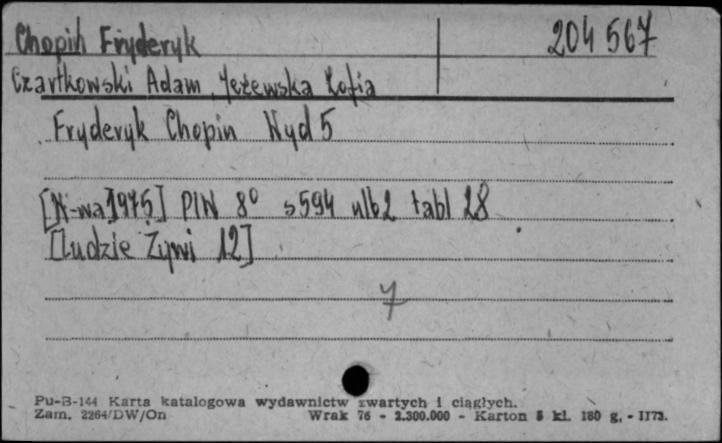 Chopin Fryderyk 204 567
Czartkowski Adam, Jeżewska Zofia
Fryderyk Chopin Wyd 5
[W-wa] 1975] PIW 8° s 594 nlb 2 tabl 28
[Ludzie Żywi 12]
7
Pu-B-144 Karta katalogowa wydawnictw zwartych i ciągłych.
Zam. 2264/DW/On Wrak 76 - 2.300.000 - Karton 5 kl. 180 g. - II73.